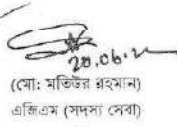 20.06.2
(মো: মতিউর রহমান)
এজিএম (সদস্য সেবা)